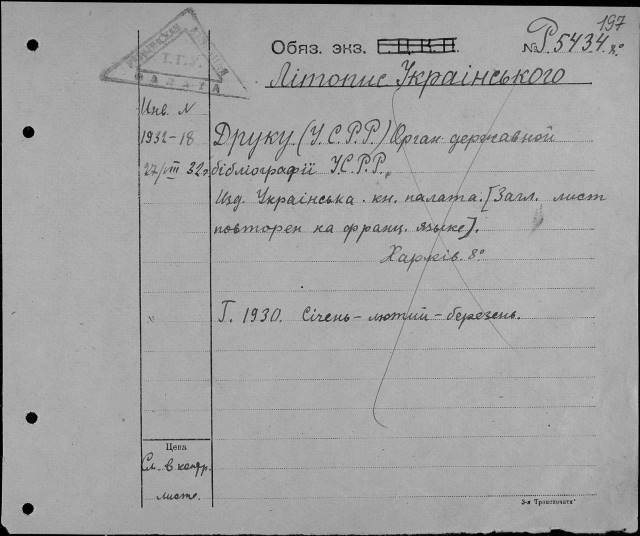 197
Обяз. экз. Г.Ц.К.П. № Р.5434. 8°
Літопис Українського
Инв. N
1932-18 Друку (У.С.Р.Р.) Орган державной
27/VIII 32г. бібліографії У.С.Р.Р.
Изд. Українська. кн. палата. [Загл. лист
повторен на франц. языке].
Харків. 8°
№ Г. 1930. Січень - лютий - березень.
Цена
См. в контр.
листе.
3-я Транспечати
Т.Г.У.
ПАЛАТА